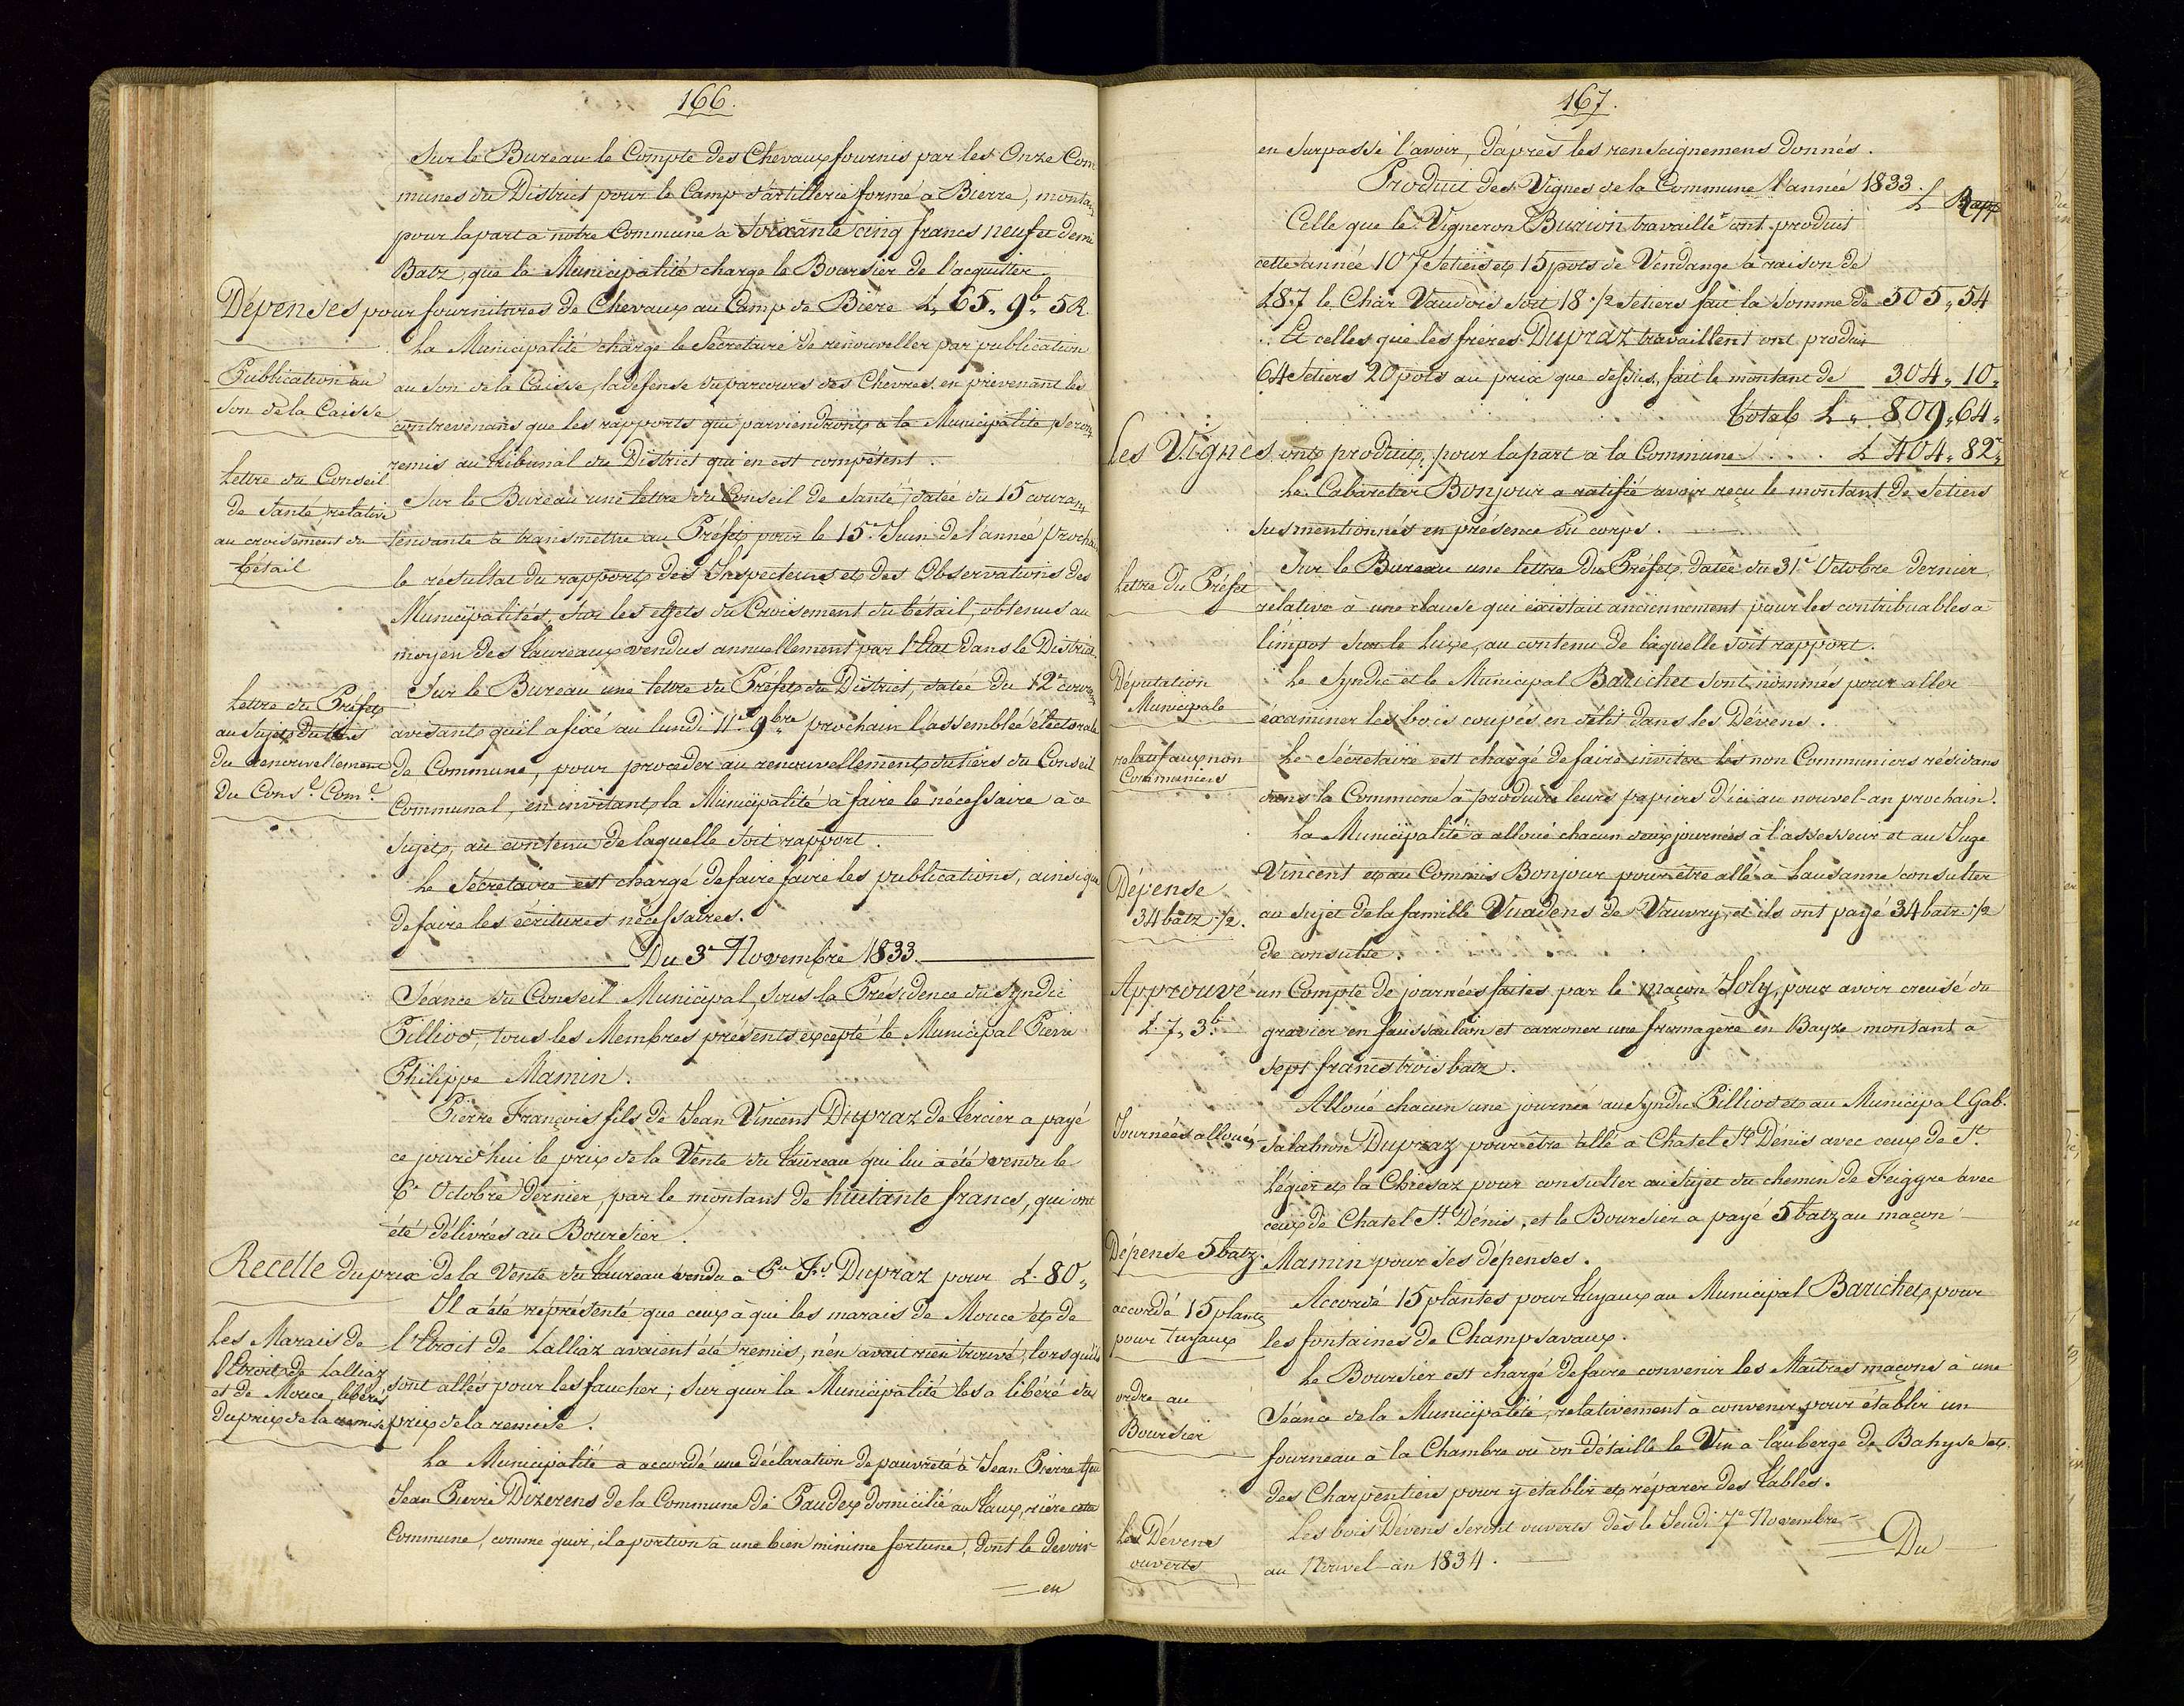 166.
Sur le Bureau le Compte des Chevaux fournis par les Onze Com
munes du District pour le Camp d'artillerie formé à Bierre, montant
pour la part à notre Commune à Soixante cinq francs neuf et demi
Batz, que la Municipalité charge le Boursier de l'acquitter.
Dépenses pour fournitures de Chevaux au Camp de Bière L. 65,, 9b,, 5 R.
La Municipalité charge le Sécretaire de renouveller par publication
Publication au
son de la Caisse
au son de la Caisse, la défense du parcours des Chèvres, en prévenant les
contrevenans que les rapports qui parviendront à la Municipalité, seront
remis au tribunal du District qui en est compétent.
Lettre du Conseil
de Santé relative
au croisement du
bétail
Sur le Bureau une lettre du Conseil de Santé, datée du 15 courant
tendante à transmettre au Préfet pour le 15e Juin de l'année prochain
le résultat du rapport des Inspecteurs et des Observations des
Municipalités, sur les effets du Croisement du bétail, obtenus au
moyen des Taureaux vendus annuellement par l'Etat dans le District.
Lettre du Préfet
au Sujet du tiers
du renouvellement
Du Consl Coml
Sur le Bureau une lettre du Préfet du District, datée du 12e courant
avisant qu'il a fixé au lundi 11e 9bre prochain l'assemblée électorale
de Commune, pour procéder au renouvellement du tiers du Conseil
Communal, en invitant la Municipalité à faire le nécessaire à ce
sujet, au contenu de laquelle soit rapport.
Le Sécretaire est chargé de faire faire les publications, ainsi que
de faire les écritures nécessaires.
Du 3e Novembre 1833.
Séance du Conseil Municipal, sous la Présidence du Syndic
Pilliod, tous les Membres présents excepté le Municipal Pierre
Philippe Mamin.
Pierre François fils de Jean Vincent Dupraz de Tercier a payé
ce jourd'hui le prix de la Vente du Taureau qui lui a été vendu le
6e Octobre dernier, par le montant de huitante francs, qui ont
été délivrés au Boursier.
Recette du prix de la Vente du Taureau vendu à Pre Fs Dupraz pour L. 80,,
Il a été représenté que ceux à qui les marais de Mouce et de
Les Marais de
l'Etroit de Lalliaz
et de Mouce, libérés
du prix de la remise
l'Etroit de Lalliaz avaient été remis, n'en avait rien trouvé, lorsqu'ils
sont allés pour les faucher; sur quoi la Municipalité les a libéré du
prix de la remise.
La Municipalité a accordé une déclaration de pauvreté à Jean Pierre
Jean Pierre Dizerens de la Commune de Paudex domicilié au Taux, rière cette
Commune, comme quoi, il a portion à une bien minime fortune, dont le devoir
en
167.
en surpasse l'avoir, d'après les renseignemens donnés.
Produit des Vignes de la Commune l'année 1833.
L Rapp
Celle que le Vigneron Burion travaille ont produit
cette année 107 Setiers et 15 pots de Vendange à raison de
L87 le Char Vaudois soit 18 1/2 Setiers fait la somme de 505,,54
Et celles que les frères Dupraz travaillent ont produit
64 Setiers 20 pots au prix que dessus, fait le montant de 304,,10,,
Total L,, 809,,64,,
Les Vignes ont produit, pour la part à la Commune . . . . L 404,,82,,
Le Cabaretier Bonjour a ratifié avoir reçu le montant de Setiers
susmentionnés en présence du corps.
Lettre du Préfet
Sur le Bureau une lettre du Préfet datée du 31e Octobre dernier,
relative à une clause qui existait anciennement pour les contribuables à
l'impot sur le Luxe, au contenu de laquelle soit rapport.
Députation
Municipale
Le Syndic et le Municipal Barichet sont nommés pour aller
éxaminer les bois coupés en délit dans les Dévens.
relatif aux non
Communiers
Le Sécretaire est chargé de faire inviter les non Communiers résidans
dans la Commune à produire leurs papiers d'ici au nouvel-an prochain.
La Municipalité a alloué chacun deux journées à l'assesseur et au Juge
Dépense
34 batz 1/2.
Vincent et au Commis Bonjour pour être allé à Lausanne consulter
au sujet de la famille Vuadens de Vauvry, et ils ont payé 34 batz 1/2
de consulte.
Approuvé un Compte de journées faites par le maçon Joly, pour avoir creusé du
L. 7,, 3b
gravier en faussaulion et carroner une fromagère en Bayze montant à
sept francs trois batz.
Journées alloués
Alloué chacun une journée au Syndic Pilliod et au Municipal Gab.
Salahion Dupraz pour être allé à Chatel St Dénis avec ceux de St
Légier et la Chiesaz pour consulter au sujet du chemin de Feiggre avec
ceux de Chatel St Dénis, et le Boursier a payé 5 batz au maçon
Dépense 5 batz.
Mamin pour ses dépenses.
accordé 15 plantes
pour tuyaux
Accordé 15 plantes pour tuyaux au Municipal Barichet, pour
les fontaines de Champsavaux.
ordre au
Boursier
Le Boursier est chargé de faire convenir les Maîtres maçons à une
Séance de la Municipalité, relativement à convenir pour établir un
fourneau à la Chambre où on détaille le Vin à l'auberge de Bahyse et
des Charpentiers pour y établir et réparer des Tables.
Les Dévens
ouverts
Les bois Dévens seront ouverts dès le Jeudi 7e Novembre
au Nouvel-an 1834.
Du